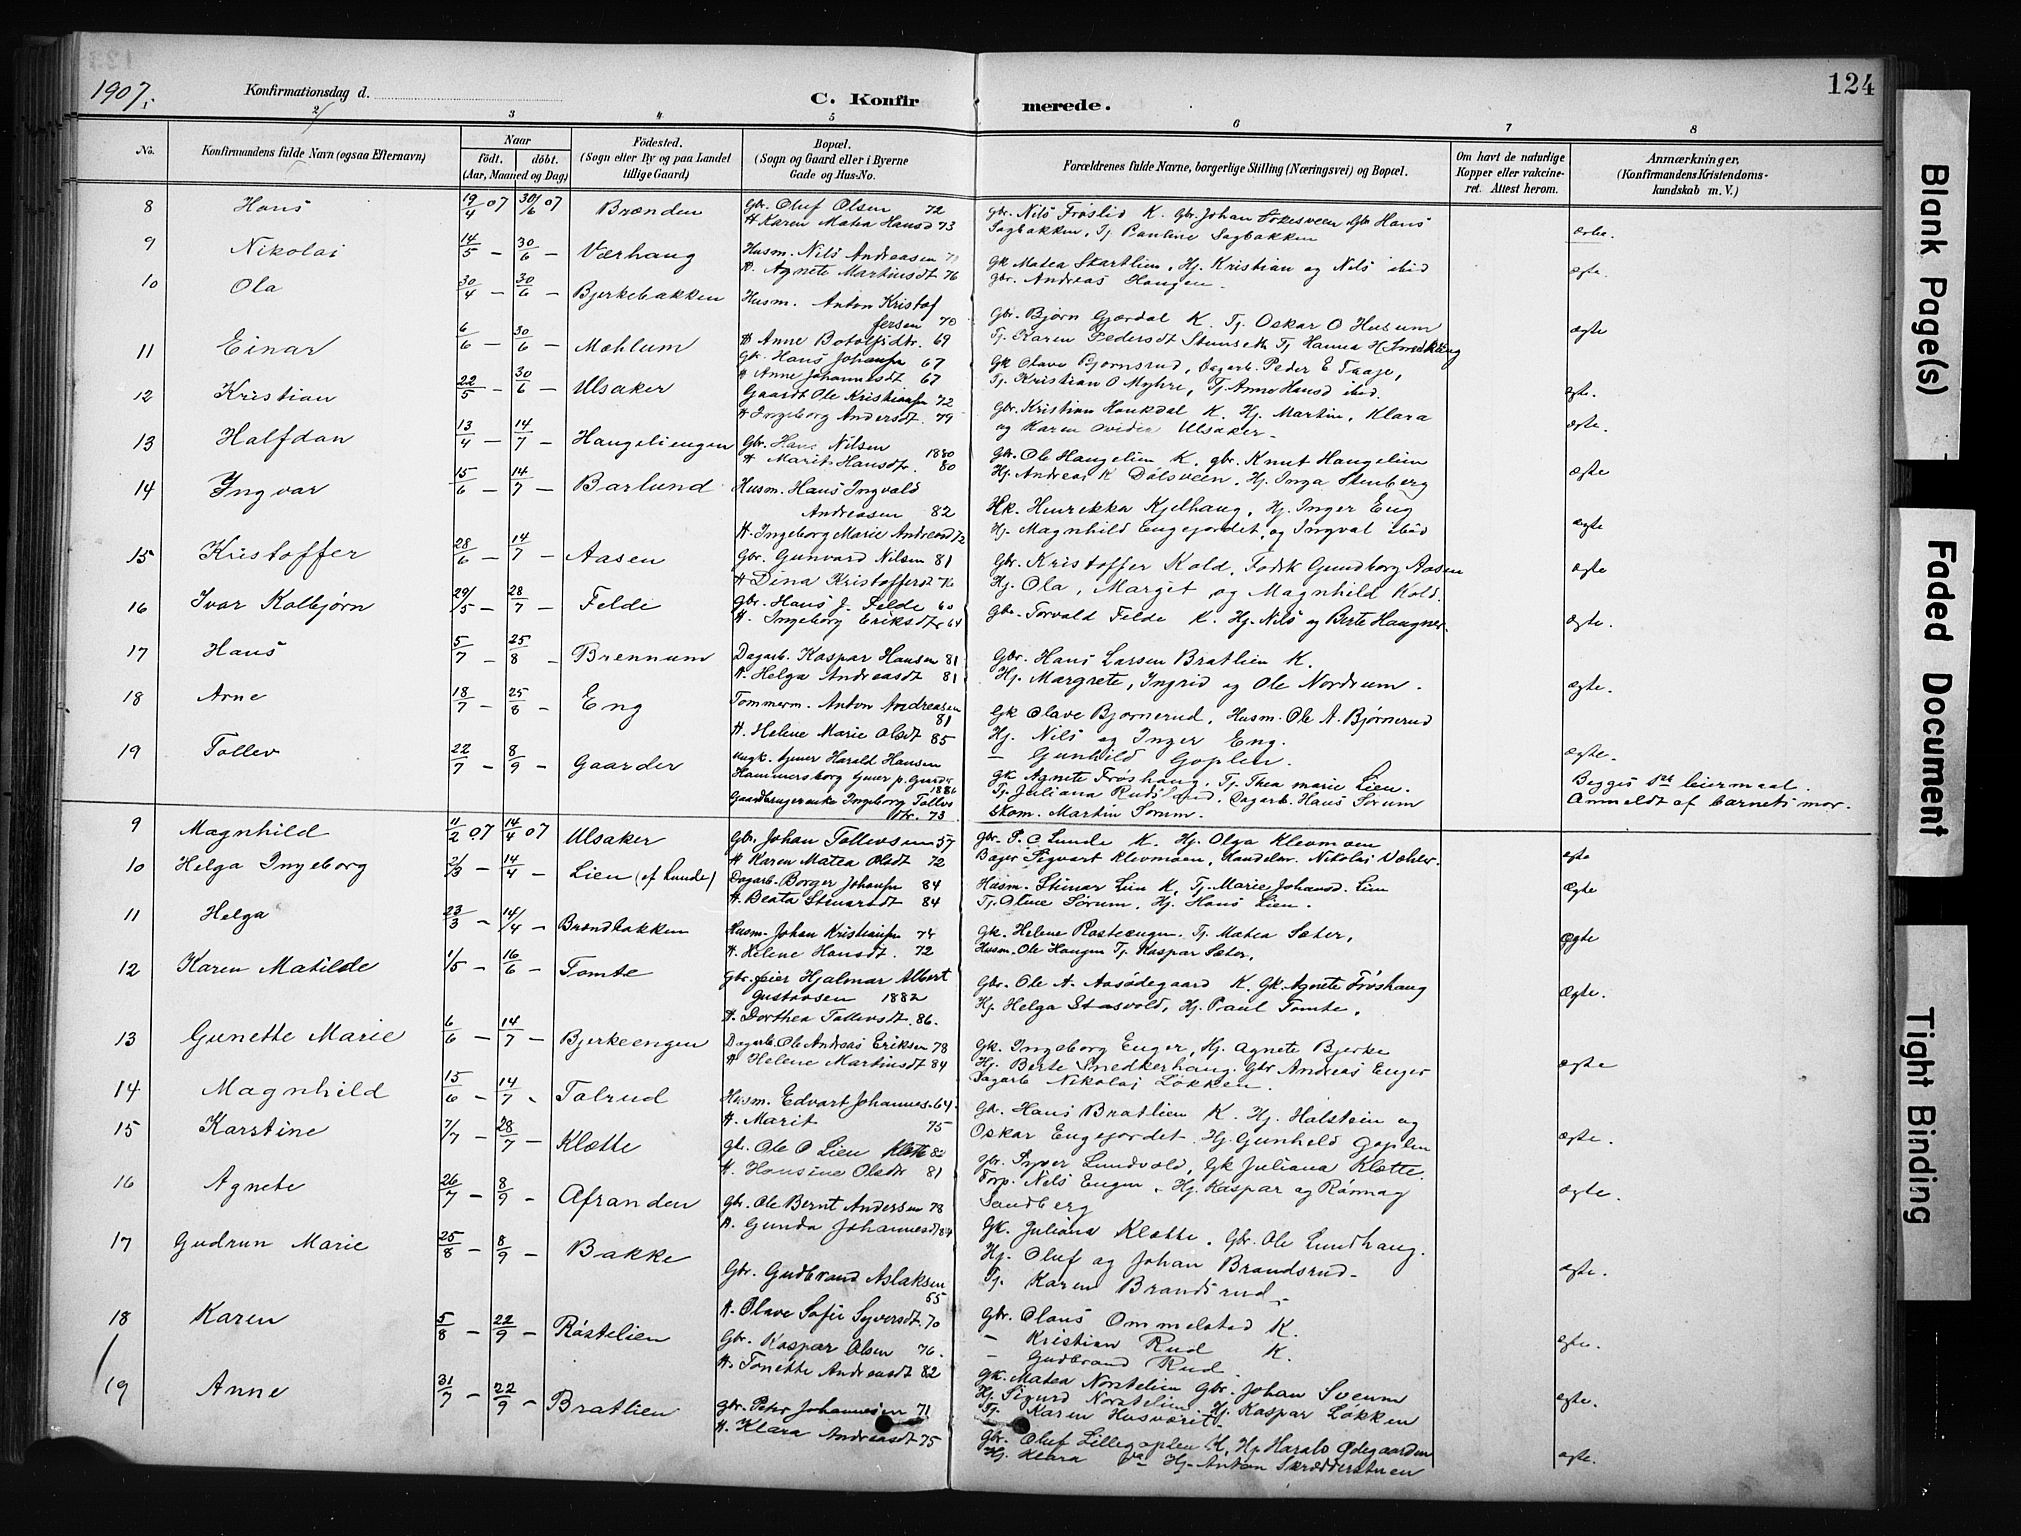 1907.
Konfirmationsdag d.
C. Konfirmerede.
124
2 3 4 5 6 7 8
No.
Konfirmandens fulde Navn (ogsaa Efternavn)
Naar
født. døbt.
(Aar, Maaned og Dag)
Fødested.
(Sogn eller By og paa Landet
tillige Gaard)
Bopæl.
(Sogn og Gaard eller i Byerne
Gade og Hus-No.
Forældrenes fulde Navne, borgerlige Stilling (Næringsvei) og Bopæl.
Om havt de naturlige
Kopper eller vakcine-
ret. Attest herom.
Anmærkninger,
(Konfirmandens Kristendoms-
kundskab m. V.)
8 Hans 19/4 07 30/6 07 Brænden
Gbr. Oluf Olsen 72
H Karen Matea Hansd 73
gbr. Nils Frøslid K. Gbr. Johan
Sagbakken, Tj. Pauline Sagbakken
9 Nikolai 14/5 – 30/6 – Værhaug
Husm. Nils Andreasen
H. Agnete Martinsdt 76
Gk Matea Skartlien, Hj. Kristian og Nils ibid
gbr. Andreas Haugen. ægte.
10 Ola 30/4 – 30/6 – Bjerkebakken
Husm. Anton Kristof
fersen 70
H Anne Botolfsdtr. 69
Gbr. Bjørn Gjærdal K. Tj. Oskar O Husum
Tj. Karen Pedersdt Stenseth Tj Hanna H
ægte
11 Einar 6/6 – 30/6 – Mæhlum
Gk. Hans Johansen 67
H Anne Johannesdt 67
Gk Olave Bjørnsrud, Dagarb. Peder E Faaje,
Tj. Kristian O Myhre, Tj. Anne Hansd ibid.
ægte.
12 Kristian 22/5 – 30/6 – Ulsaker
Gaardt Ole Kristiansen 72
H Ingeborg Andersdt. 79
Gbr. Kristian Haukdal K. Hj. Martin, Klara
og Karen Ulsaker.
ægte.
13 Halfdan 13/4 – 14/7 – Haugeliengen
Gbr. Hans Nilsen 1880
H Marit Hansdt. 80
Gbr. Ole Haugelien K. gbr. Knut Haugelien
Hj. Andreas K Dølsveen, Hj. Inga Stenberg
ægte
14 Ingvar 15/6 – 14/7 – Barlund
Husm. Hans Ingvald
Andreasen 82
H. Ingeborg Marie Andreasd 72
Hk. Henrekka Kjelhaug, Hj. Inger Eng
Hj. Magnhild Engejordet, og Ingval ibid
ægte
15 Kristoffer 28/6 – 14/7 – Aasen
Gbr. Gunvard Nilsen 81
H Dina Kristoffersdt 76
Gbr. Kristoffer Kold, Fødsk Gundborg Aasen
Hj. Ola, Marget og Magnhild Kold.
ægte
16 Ivar Kolbjørn 29/5 – 28/7 – Felde
Gbr. Hans J. Felde 60
H. Ingeborg Eriksdtr 64
Gbr. Torvald Felde K. Hj. Nils og Berte Haugner.
ægte.
17 Hans 5/7 – 25/8 – Brennum
Dagarb. Kaspar Hansen 81
H. Helga Andreasdt 81
Gbr. Hans Larsen Bratlien K.
Hj. Margrete, Ingrid og Ole Nordrum.
ægte.
18 Arne 18/7 – 25/8 – Eng
Tømmerm. Anton Andreasen
81
H. Helene Marie Olsdt 85
Gk Olave Bjørnerud, Husm. Ole A. Bjørnerud
Hj. Nils og Inger Eng.
– Gunhild Goplen.
ægte.
19 Tollev 22/7 – 8/9 – Gaarder
Ungk. Harald Hansen
Hammersborg
1886
Gaardbrugerenke Ingeborg Tollevs
dtr. 73
gk Agnete Frøshaug. Tj. Thea Marie Lien.
Tj. Juliana Dagarb. Hans Sørum
Skom. Martin Somm.
Begges 1ste leiermaal.
Anmeldt af barnets mor.
9 Magnhild 11/2 07 14/4 07 Ulsaker
Gbr. Johan Tollevsen 57
H Karen Matea Olsdt 72
gbr. P. C Lunde K. Hj. Olga Klevmoen
Bager Sigvart Klevmoen, Handelm. Nikolai Væhler.
ægte
10 Helga Ingeborg 2/3 – 14/4 – Lien (af Lunde)
Dagarb. Borger Johansen 84
H. Beata Steinarsdt 84
Husm. Steinar Lien K, Tj. Marie Johansd. Lien
Tj. Oline Sørum, Hj. Hans Lien.
Ægte
11 Helga 23/3 – 14/4 – Brændbakken
Husm. Johan Kristiansen 74
H. Helene Hansdt. 72
Gk. Helene Plasteengen. Tj. Matea Sæter,
Husm. Ole Haugen Tj. Kaspar Sæter.
Ægte
12 Karen Matilde 1/5 – 16/6 – Tomte
Gbr.feier Hjalmar Albert
Gustavsen 1882
H. Dorthea Tollevsdt. 86.
Gbr. Ole A. Aasødegaard K. Gk. Agnete Frøshaug
Hj. Helga Stasvold, Hj. Paul Tomte.
Ægte.
13 Gunette Marie 6/6 – 14/7 – Bjerkeengen
Dagarb. Ole Andreas Eriksen 78
H Helene Martinsdt 84
Gk. Ingeborg Enger, Hj. Agnete Bjerke
Hj. Berte Snedkerhaug. Gbr Andreas Enger
Dagarb Nikolai Løkken.
ægte
14 Magnhild 15/6 – 14/7 – Tolrud
Husm. Edvart Johannes. 64.
H. Marit 75
Gk. Hans Bratlien K. Hj. Halstein og
Oskar Engejordet. Hj. Gunhild Goplen
ægte.
15 Karstine 7/7 – 28/7 – Klætte
gb. Ole O Lien
H. Hansine Olsdtr 81
gbr. Syver Lundvold, Gk Juliana Klætte.
Forp. Nils Engen, Hj. Kaspar og Rønnag
Sandberg
16 Agnete 26/7 – 8/9 – Afranden
Gbr. Ole Bernt Andersen 78
H. Gunda Johannesdt 84
Gk. Juliana Klætte. Gbr. Ole Lundhaug.
Hj. Oluf og Johan Brandsrud.
Tj. Karen Brandsrud.
ægte.
17 Gudrun Marie 25/8 – 8/9 – Bakke
Gbr. Gudbrand Aslaksen
55
H. Olave Sofie Syversdt 70
Gbr. Olaus Ommelstad K.
– Kristian Rud K.
– Gudbrand Rud.
ægte.
18 Karen 5/8 – 22/9 – Røstelien
Gbr. Kaspar Olsen 76.
H. Tonette Andreasdt 82
Gk. Matea Norstelien Gbr. Johan Sveum
Hj. Sigurd Norstelien, Hj. Kaspar Løkken
Tj. Karen Husværet.
ægte.
19 Anne 31/7 – 22/9 – Bratlien
Gbr. Peter Johannesen 71
H. Klara Andreasdt 75
Gbr. Oluf Lillegoplen K, Hj. Harald Ødegaarden
Hj. Klara Hj. Anton Skrædderstuen
ægte.
Blank Page(s)
Faded Document
Tight Binding